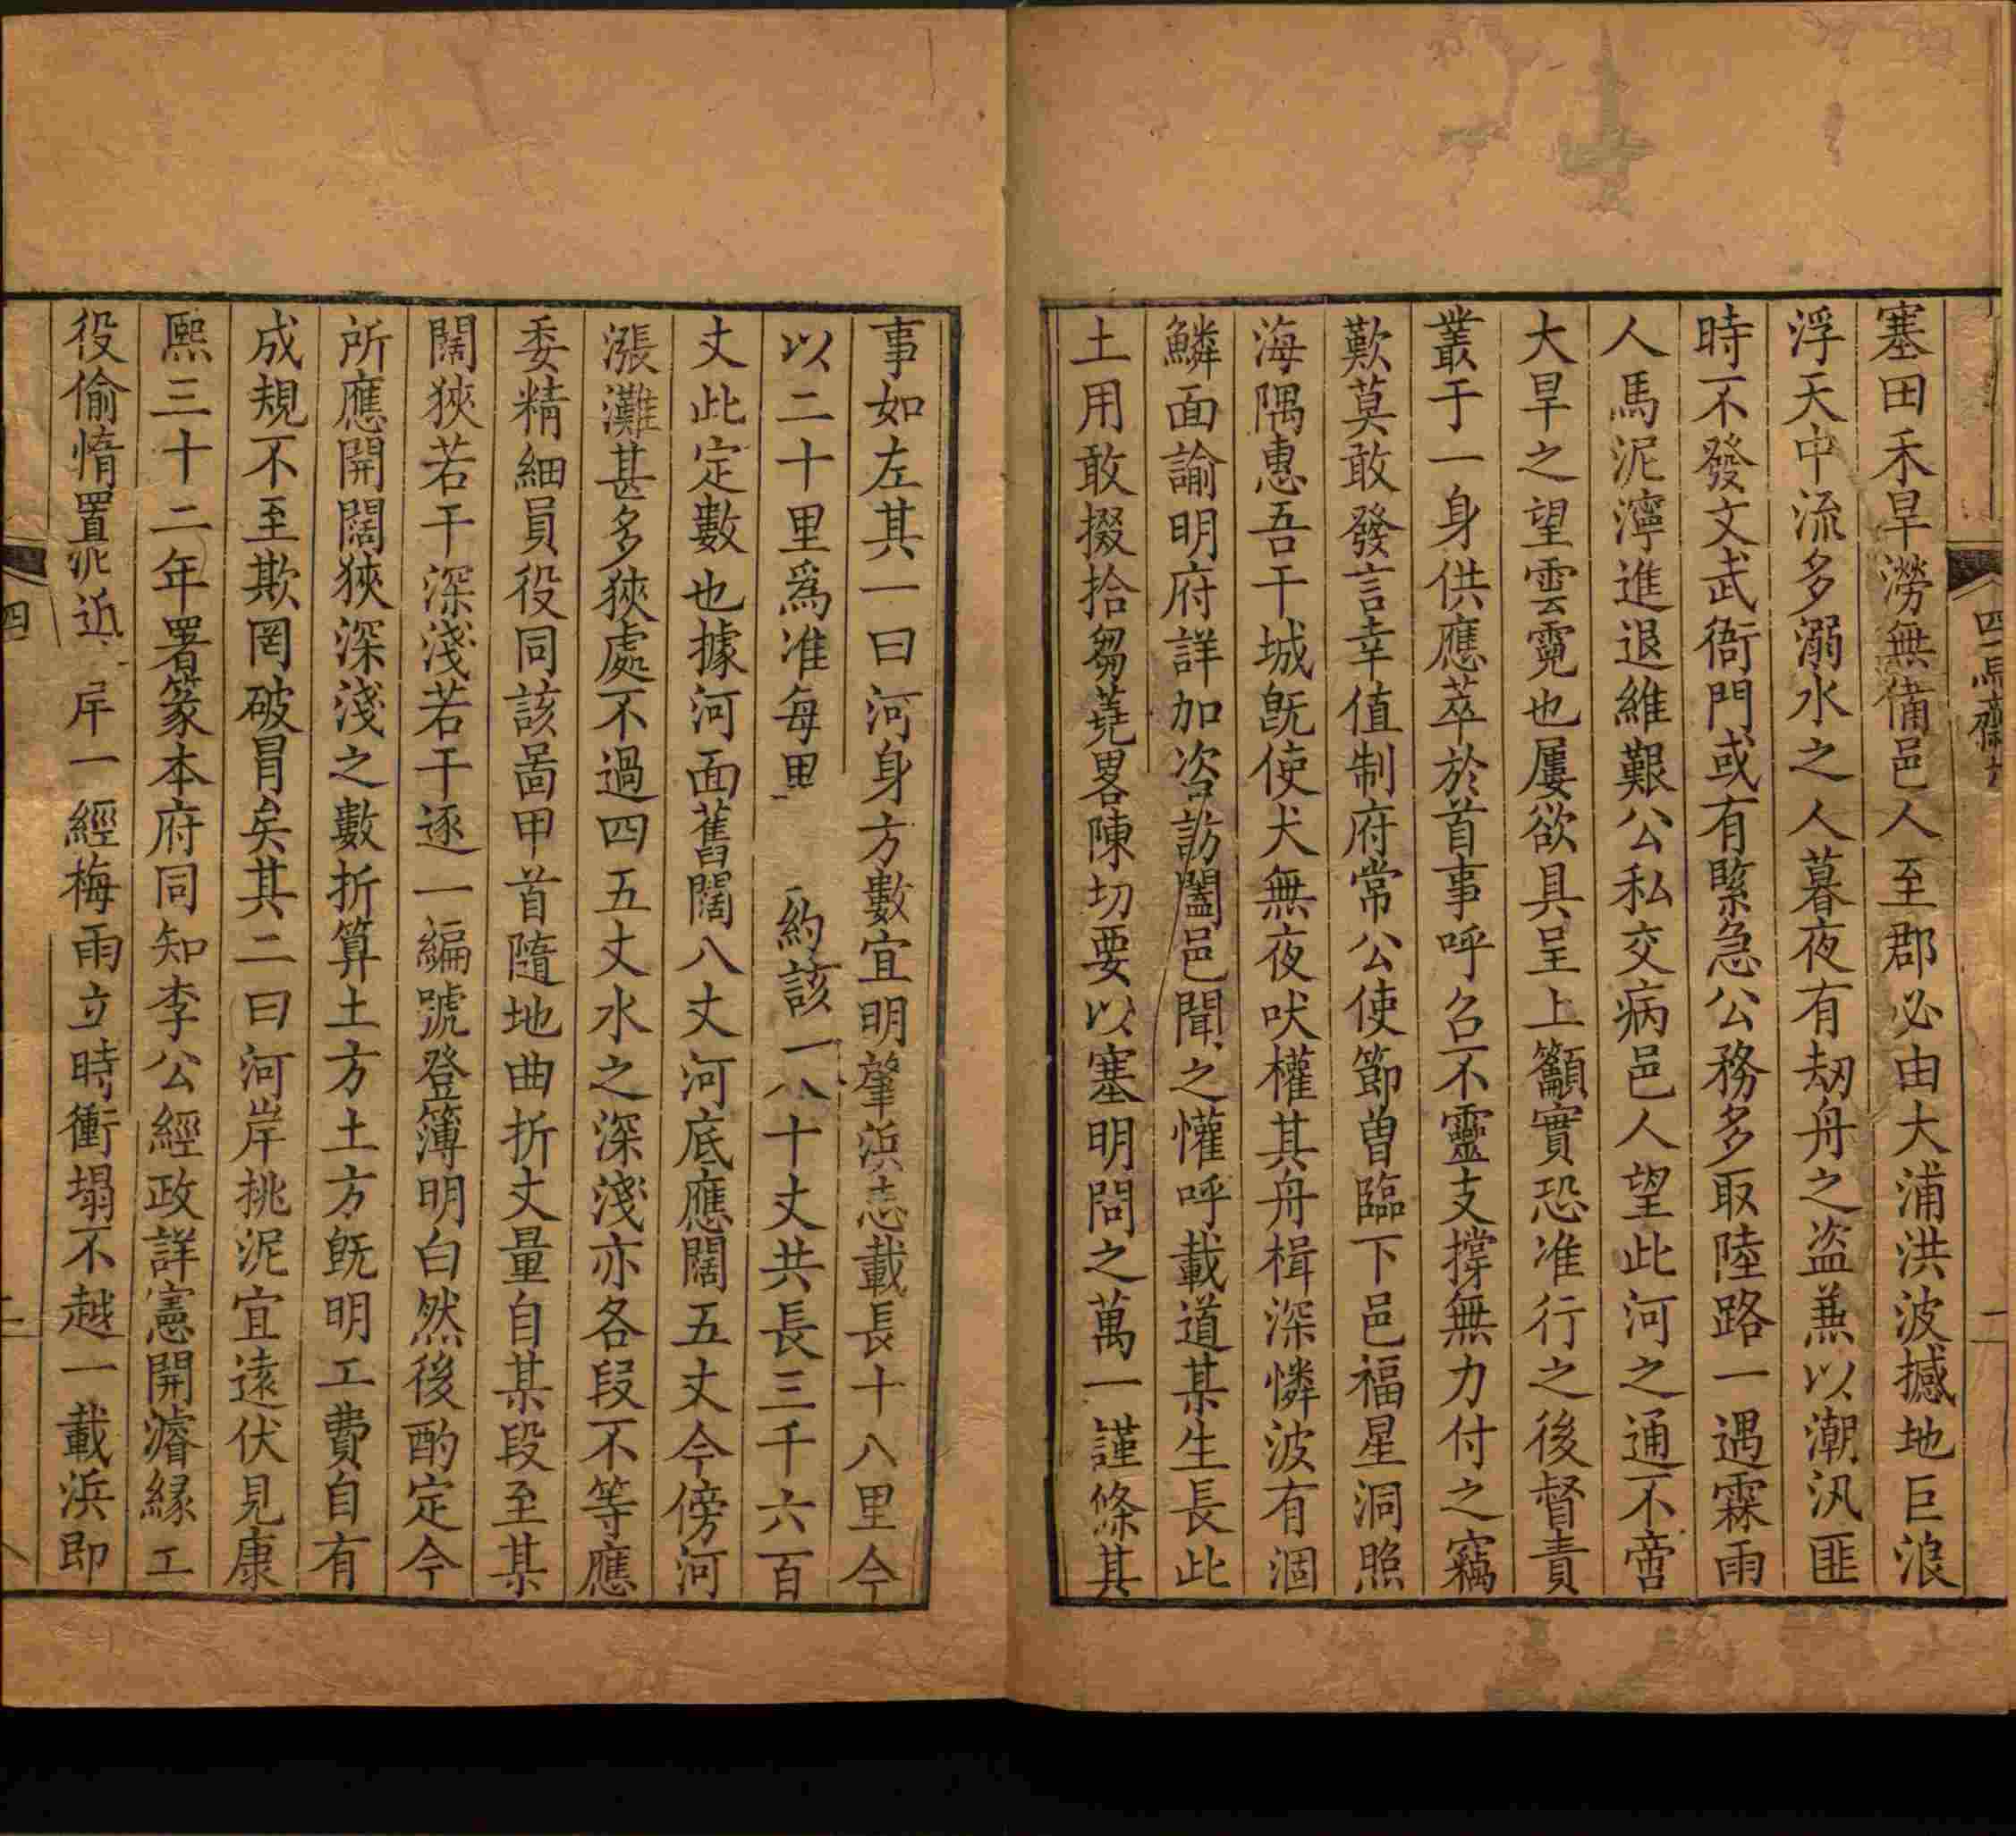 塞田禾旱澇無備邑人至郡必由大浦洪波撼地巨浪
浮天中流多溺水之人暮夜有刼舟之盗兼以潮汛匪
時不發文武衙門或有緊急公務多取陸路一遇霖雨
人馬泥濘進退維艱公私交病邑人望此河之通不啻
大旱之望雲霓也屢欲具呈上籲實恐准行之後督責
叢于一身供應萃於首事呼召不靈支撐無力付之竊
歎莫敢發言幸值制府常公使節曽臨下邑福星洞照
海隅惠吾干城旣使犬無夜吠權其舟楫深憐波有涸
鱗面諭明府詳加咨訪闔邑聞之懽呼載道某生長此
土用敢掇拾芻蕘畧陳切要以塞明問之萬一謹條其
事如左其一曰河身方數宜明肇浜志載長十八里今
以二十里爲准每里 約該一八十丈共長三千六百
丈此定數也據河面舊闊八丈河底應闊五丈今傍河
漲灘甚多狹處不過四五丈水之深淺亦各段不等應
委精細員役同該啚甲首隨地曲折丈量自某段至某
闊狹若干深淺若干逐一編號登簿明白然後酌定今
所應開闊狹深淺之數折算土方土方旣明工費自有
成規不至欺罔破冒矣其二曰河岸挑泥宜遠伏見康
熈三十二年署篆本府同知李公經政詳憲開濬緣工
役偷惰置泥近 岸一經梅雨立時衝塌不越一載浜即
四